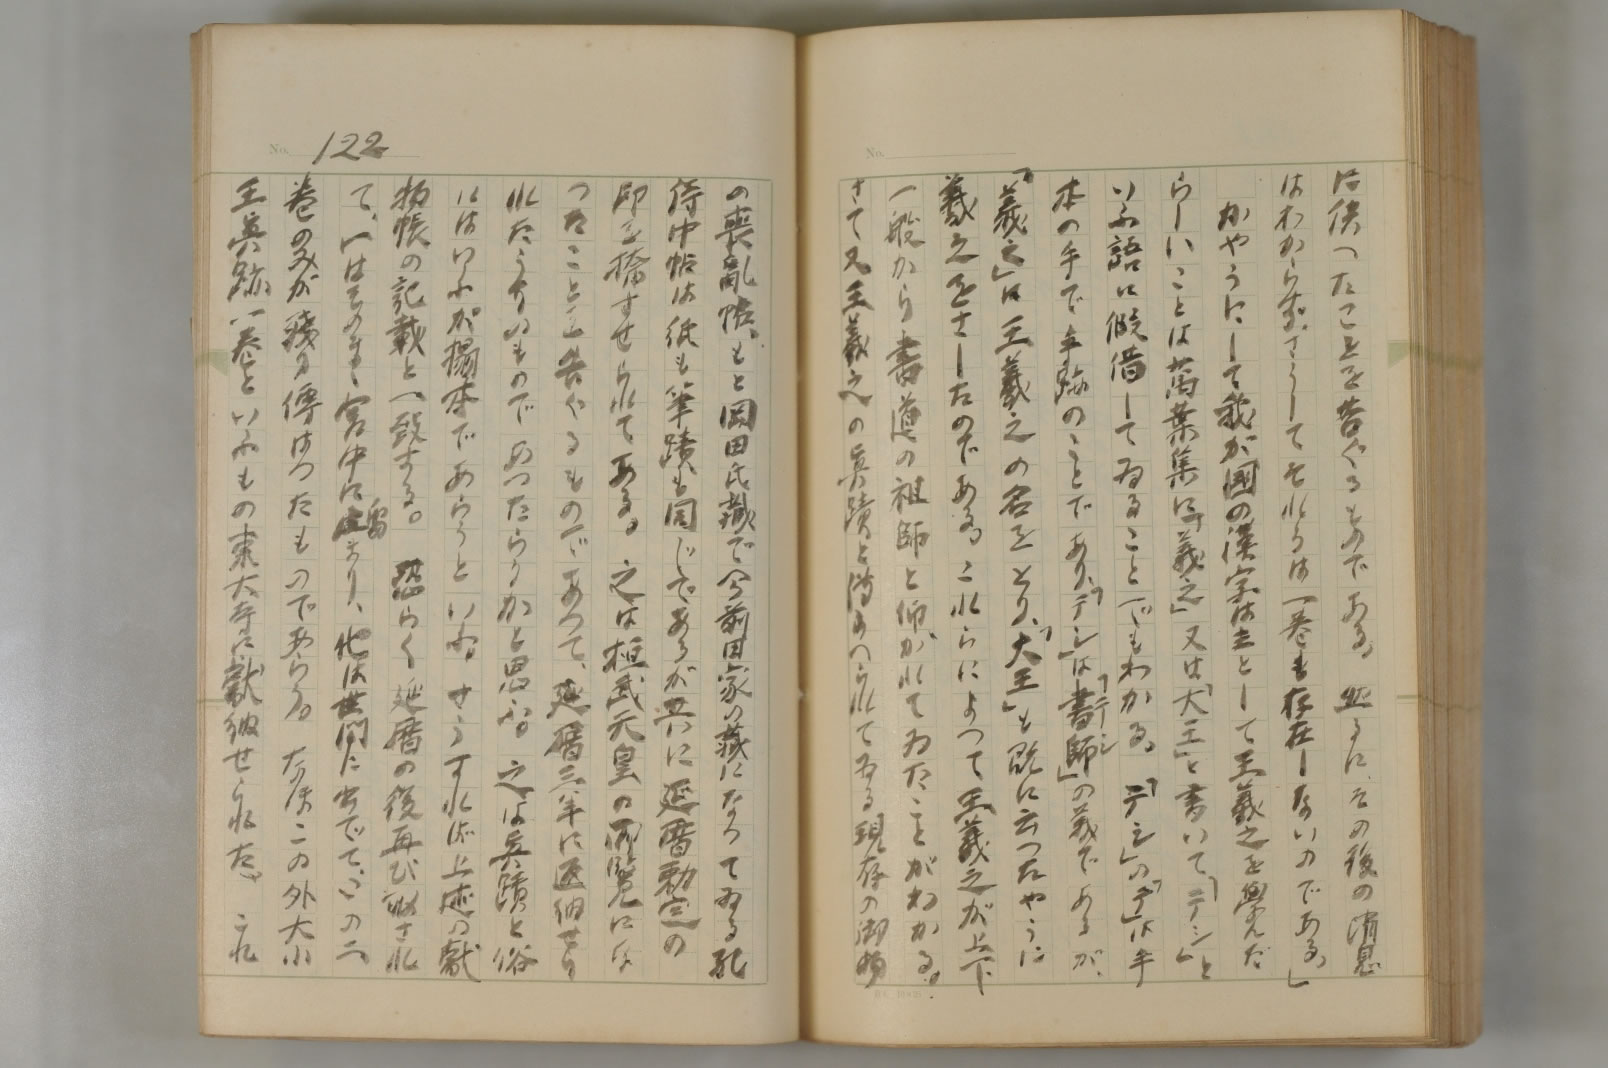 に供へたことを告ぐるもので ある。 然るに、その後の消息
はわからず、さうしてそれらは一巻も存在しないのである。」
かやうにして我が國の漢字は主として王羲之を學んだ
らしいことは萬葉集に「羲之」又は「大王」と書いて、「テシ」と
いふ語に假借してゐることでもわかる。「テシ」の「テ」は手
本の手で手跡のことであり、「テシ」は「書師」の義であるが、
テシ
「羲之」は王羲之の名をとり、「大王」も既に云つたやうに
羲之をさしたのである。これらによつて王羲之が上下
一般から書道の祖師と仰がれてゐたことがわかる。
さて又王羲之の眞蹟と傳へられてゐる現存の御物
No.
No. 122
の喪亂帖、もと岡田氏藏で今前田家の藏になつてゐる孔
侍中帖は紙も筆蹟も同じであるが共に延暦勅定の
印を捺すせられてある。之は桓武天皇の御覧にな
つたことを告ぐるものであつて、延暦三年に返納せら
れたうちのものであつたらうかと思ふ。之は眞蹟と俗
にはいふが搨本であらうといふ。さうすれば上述の獻
物帳の記載と一致する。 恐らく延暦の後再び出され
て、一はそのまゝ宮中に留まり、他は世間に出でて、この二
巻のみが殘り傳はつたものであらう。 なほこの外大小
王眞跡一巻といふもの東大寺に獻納せられた。 これ